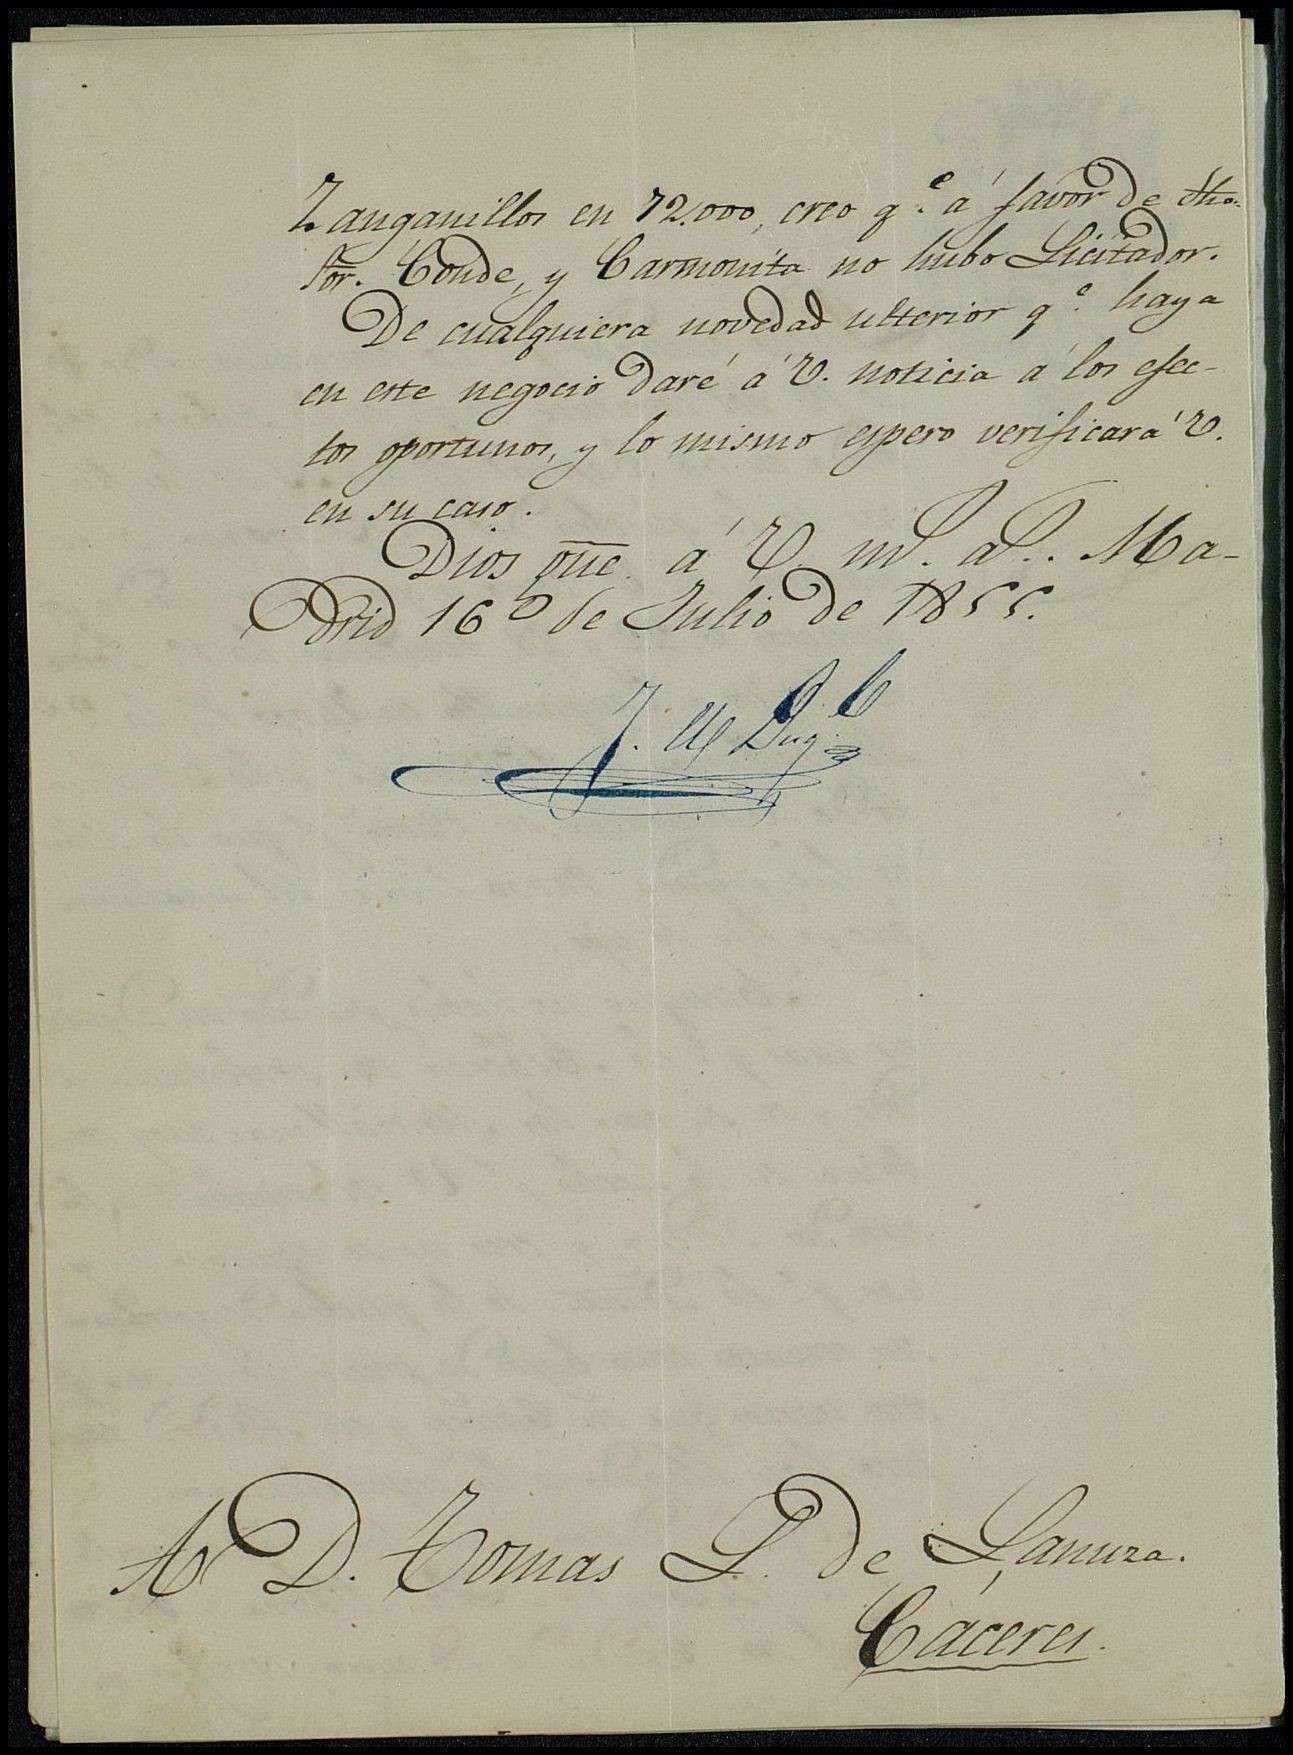 Zanganillos en 72.000, creo q.e á favor de dho.
Sor. Conde, y Carmonita no hubo Licitador.
De cualquiera novedad ulterior q.e haya
en este negocio daré á V. noticia á los efec-
tos oportunos, y lo mismo espero verificará V.
en su caso.
Dios gũe. á V. m.s a.s. Ma-
drid 16 de Julio de 1855.
J. M
A D. Tomas L. de Lanuza.
Cáceres.